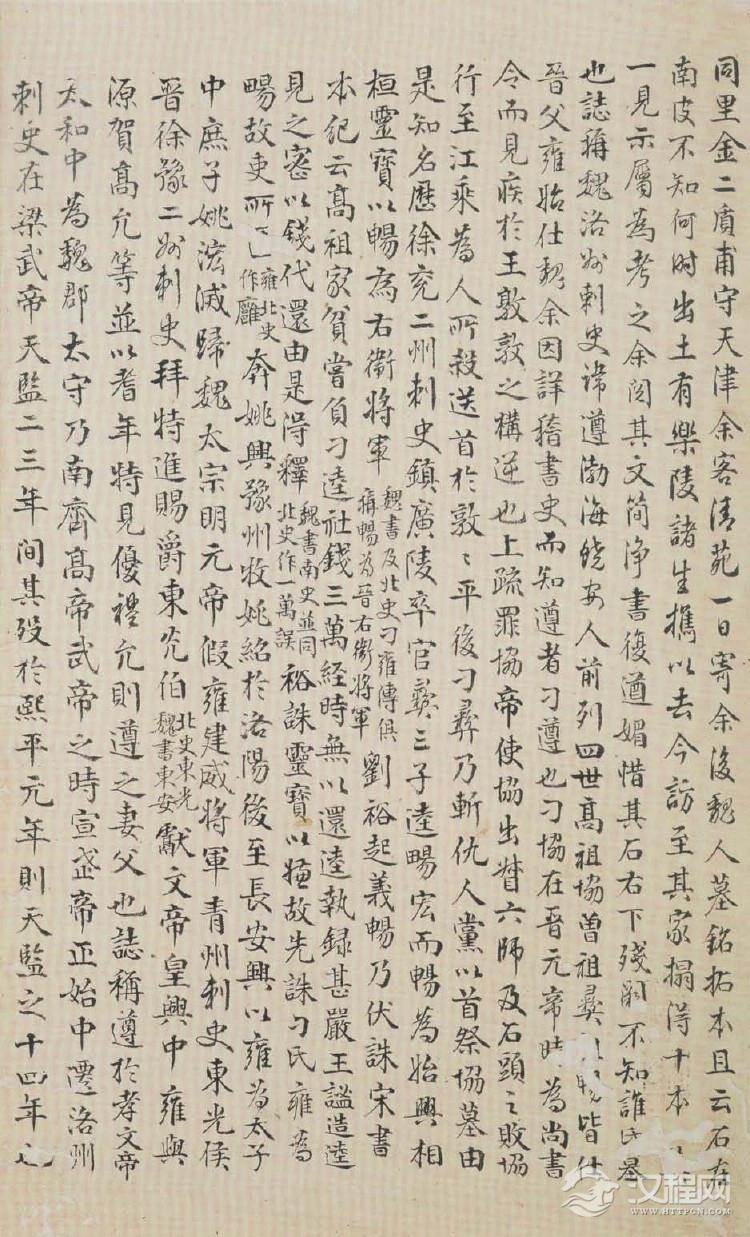 同里金二質甫守天津余客清苑一日寄余後魏人墓銘拓本且云石在
南皮不知何時出土有樂陵諸生攜以去今訪至其家搨得十本
一見示屬為考之余閱其文簡淨書復遒媚惜其石右下殘闕不知誰氏墓
也誌稱魏洛州刺史諱遵渤海饒安人前列四世高祖協曾祖彝 皆仕
晉父雍始仕魏余因詳稽書史而知遵者刁遵也刁協在晉元帝時為尚書
令而見疾於王敦敦之構逆也上疏罪協帝使協出督六師及石頭之敗協
行至江乘為人所殺送首於敦〻平後刁彝乃斬仇人黨以首祭協墓由
是知名歷徐兗二州刺史鎮廣陵卒官彝三子逵暢宏而暢為始興相
桓靈寶以暢為右衛將軍魏書及北史刁雍傳俱稱暢為晉右衛將軍劉裕起義暢乃伏誅宋書
本紀云高祖家貧嘗負刁逵社錢三萬經時無以還逵執錄甚嚴王謐造逵
見之密以錢代還由是得釋魏書南史並同北史作一萬誤裕誅靈寶以嫌故先誅刁氏雍為
暢故吏所匿雍北史作廱奔姚興豫州牧姚紹於洛陽後至長安興以雍為太子
中庶子姚泓滅歸魏太宗明元帝假雍建威將軍青州刺史東光侯
晉徐豫二州刺史拜特進賜爵東光伯北史東光魏書東安獻文帝皇興中雍與
源賀高允等並以耆年特見優禮允則遵之妻父也誌稱遵於孝文帝
太和中為魏郡太守乃南齊高帝武帝之時宣武帝正始中遷洛州
刺史在梁武帝天監二三年間其歿於熙平元年則天監之十四年也
汉程网
WWW.HTTPCN.COM